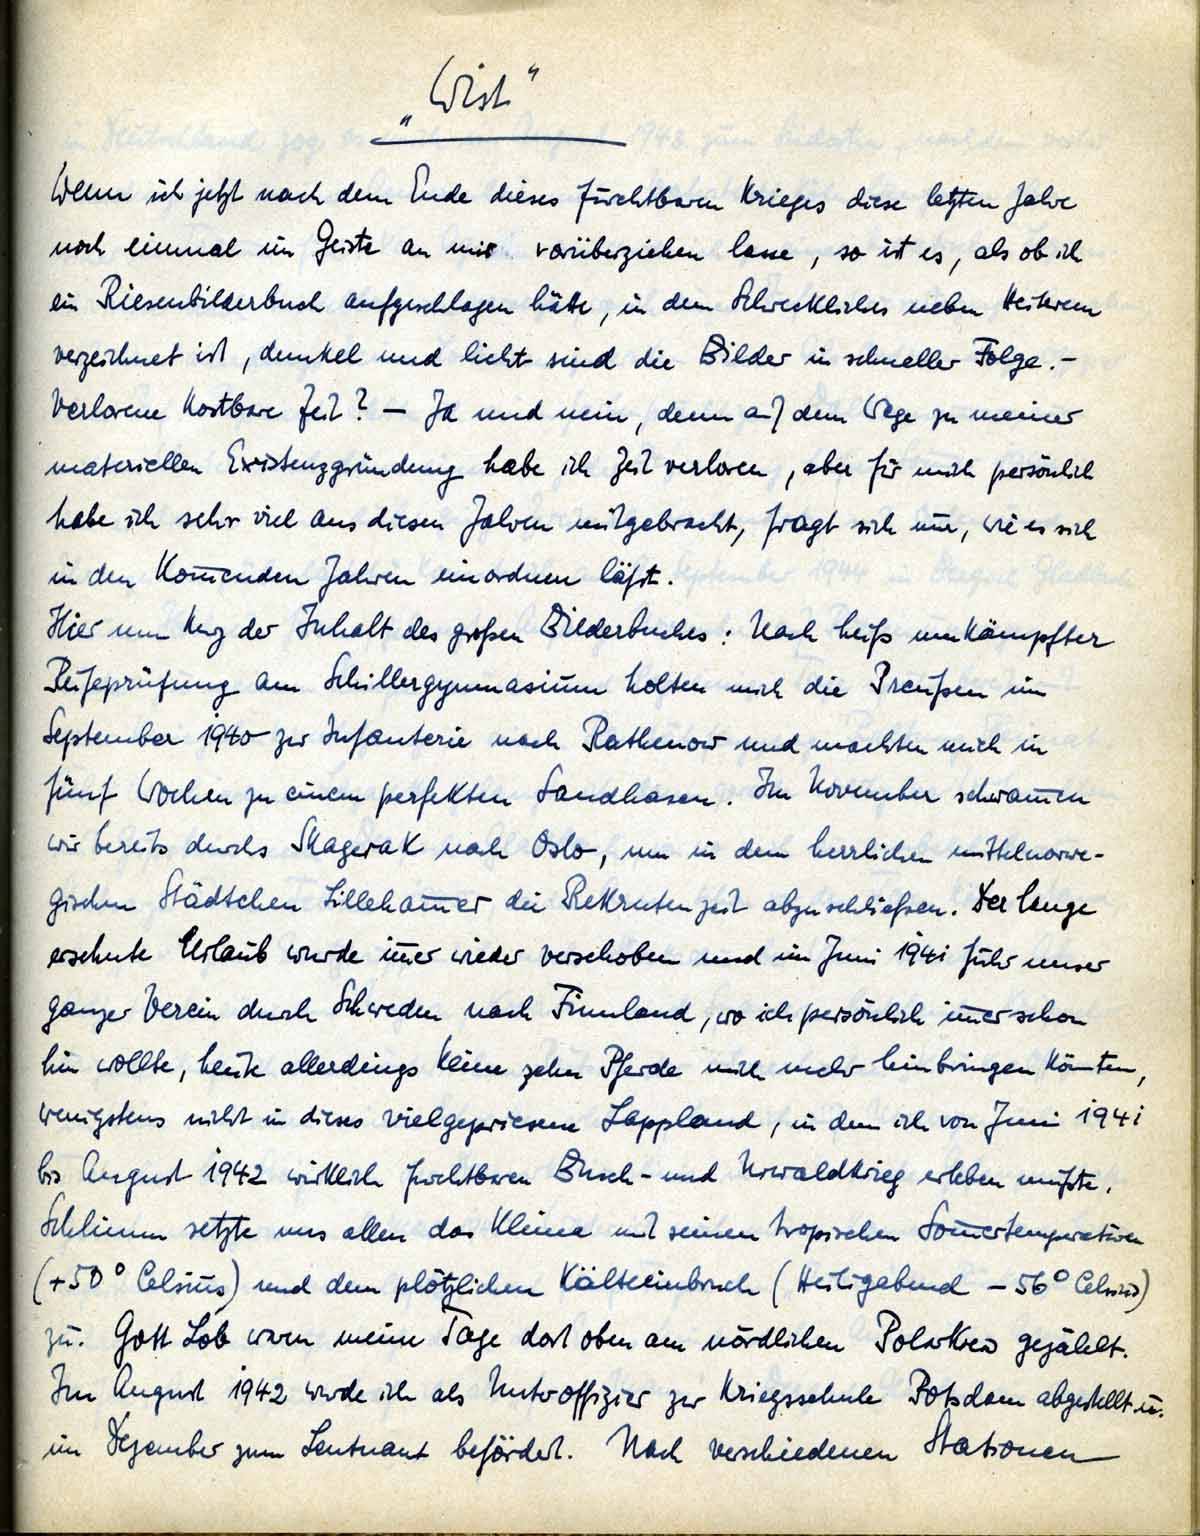 „Wist"
Wenn ich jetzt nach dem Ende dieses furchtbaren Krieges diese letzten Jahre
noch einmal im Geiste an mir vorüberziehen lasse, so ist es, als ob ich
ein Riesenbilderbuch aufgeschlagen hätte, in dem Schreckliches neben Heiterem
verzeichnet ist, dunkel und licht sind die Bilder in schneller Folge. –
Verlorene kostbare Zeit? – Ja und nein, denn auf dem Wege zu meiner
materiellen Existenzgründung habe ich Zeit verloren, aber für mich persönlich
habe ich sehr viel aus diesen Jahren mitgebracht, fragt sich nur, wie es sich
in den kom̅enden Jahren einordnen läßt.
Hier nun kurz der Inhalt des großen Bilderbuches: Nach heiß umkämpfter
Reifeprüfung am Schillergymnasium holten mich die Preußen im
September 1940 zur Infanterie nach Rathenow und machten mich in
fünf Wochen zu einem perfekten Sandhasen. Im November schwam̅en
wir bereits durchs Skagerak nach Oslo, um in dem herrlichen mittelnorwe-
gischen Städtchen Lilleham̅er die Rekrutenzeit abzuschließen. Der lange
ersehnte Urlaub wurde im̅er wieder verschoben und im Juni 1941 fuhr unser
ganzer Verein durch Schweden nach Finnland, wo ich persönlich im̅er schon
hin wollte, heute allerdings keine zehn Pferde mich mehr hinbringen kön̅ten,
wenigstens nicht in dieses vielgepriesene Lappland, in dem ich von Juni 1941
bis August 1942 wirklich furchtbaren Busch- und Urwaldkrieg erleben mußte.
Schlimm setzte uns allen das Klima mit seinen tropischen Som̅ertemperaturen
(+50° Celsius) und dem plötzlichen Kälteeinbruch (Heiligabend – 56° Celsius)
zu. Gott Lob waren meine Tage dort oben am nördlichen Polarkreis gezählt.
Im August 1942 wurde ich als Unteroffizier zur Kriegsschule Potsdam abgestellt u.
im Dezember zum Leutnant befördert. Nach verschiedenen Stationen